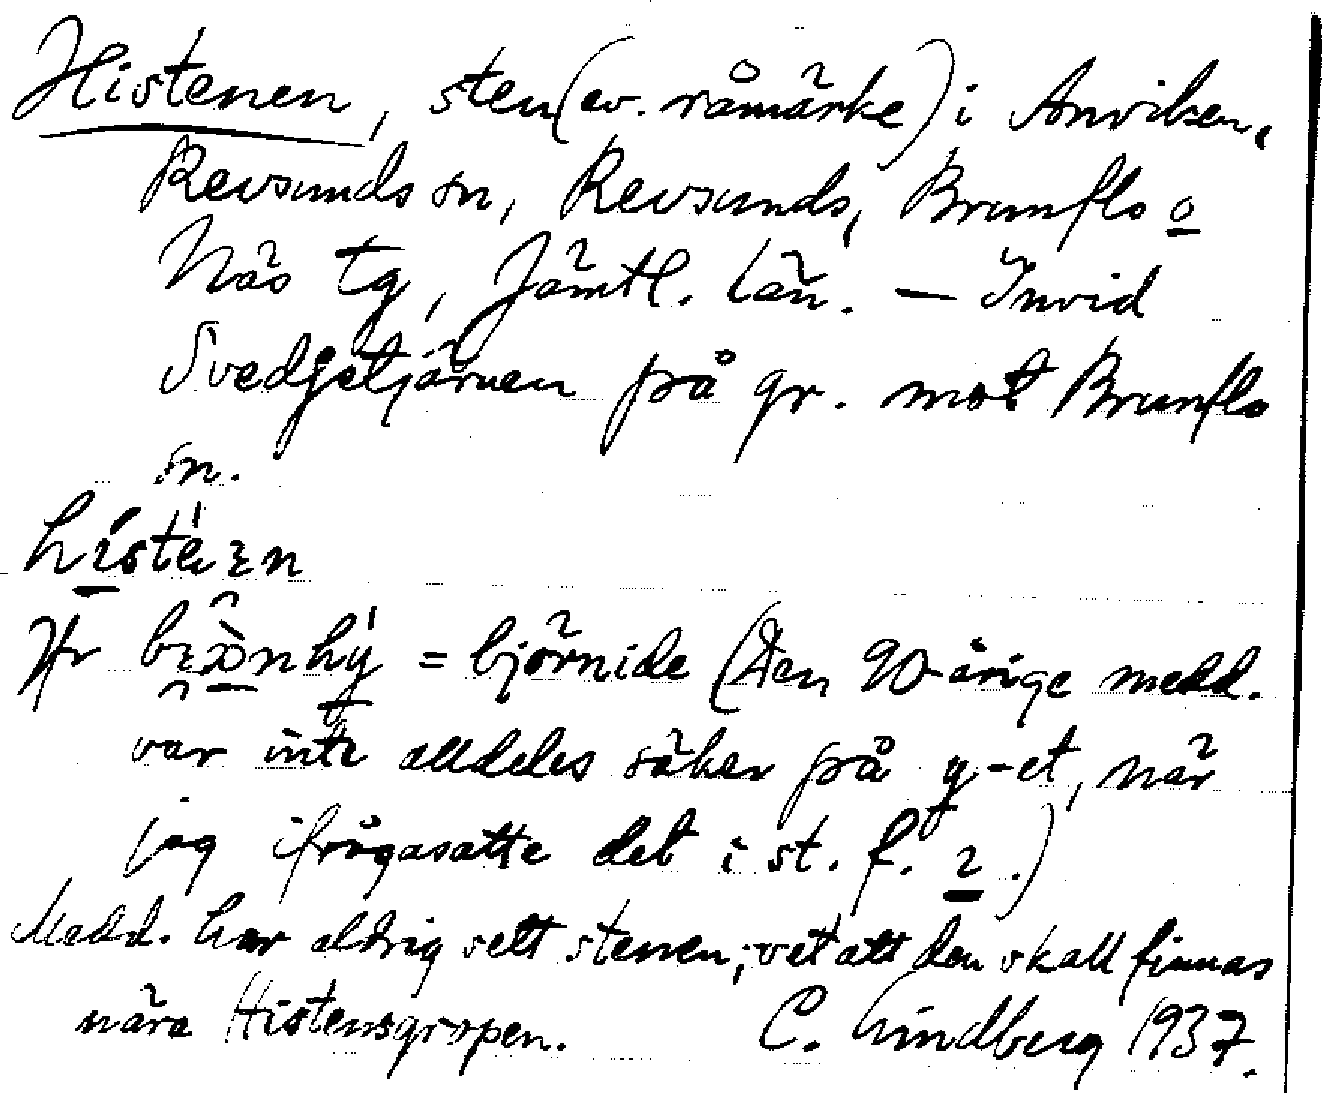 Histenen, sten (ev. råmärke) i Anviken,
Revsunds sn, Revsunds, Brunflo o
Näs tg, Jämtl. län. — Invid
Svedjetjärnen på gr. mot Brunflo
sn.
Jfr = björnide (Den 90-årige medd.
var inte alldeles säker på y-et, när
jag ifrågasatte det i st. f. ı.)
Medd. har aldrig sett stenen; vet att den skall finnas
nära Histensgropen. C. Lindberg 1937.